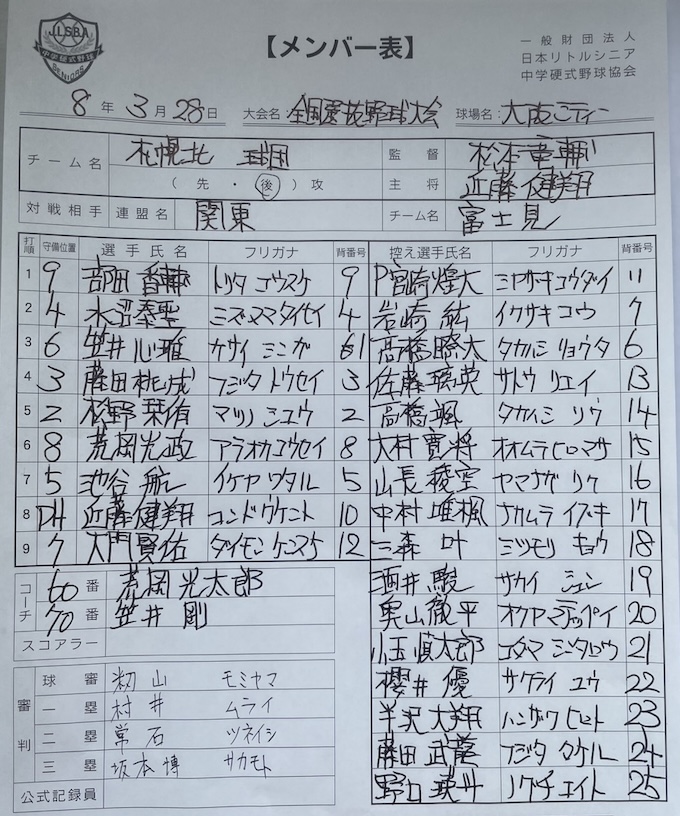 JLSBA
中学硬式野球
SENIORS
【メンバー表】
一般財団法人
日本リトルシニア
中学硬式野球協会
8年 3月 28日 大会名: 全国選抜野球大会 球場名: 大阪シティー
チーム名 札幌北 球団 監督 松本竜輔
(先・後)攻 主将 近藤健翔
対戦相手 連盟名 関東 チーム名 富士見
打順 守備位置 選手氏名 フリガナ 背番号 控え選手氏名 フリガナ 背番号
1 9 トリタ コウスケ 9 P宮崎煌大 ミヤサキコウダイ 11
2 4 水沼泰聖 ミズヌマタイセイ 4 岩崎紘 イワサキ コウ 7
3 6 笠井心雅 カサイ シンガ 61 高橋瞭太 タカハシ リョウタ 6
4 3 藤田桃成 フジタ トウセイ 3 佐藤璃英 サトウ リエイ 13
5 2 松野栞侑 マツノ シユウ 2 高橋颯 タカハシ リウ 14
6 8 荒岡光政 アラオカコウセイ 8 大村寛将 オオムラヒロマサ 15
7 5 池谷航 イケヤ ワタル 5 山長稜空 ヤマナガ リク 16
8 DH 近藤健翔 コンドウケント 10 中村唯楓 ナカムラ イブキ 17
9 7 大門賢佑 ダイモン ケンスケ 12 三森叶 ミツモリ キョウ 18
コーチ 60番 荒岡光太郎 酒井駿 サカイ シュン 19
70番 笠井剛 奥山徹平 オクヤマテッペイ 20
スコアラー 小玉慎太郎 コダマ シンタロウ 21
審判 球審 籾山 モミヤマ 櫻井優 サクライ ユウ 22
一塁 村井 ムライ 半沢大翔 ハンザワ ヒロト 23
二塁 常石 ツネイシ 藤田武蔭 フジタ タケル 24
三塁 坂本博 サカモト 野口瑛斗 ノグチ エイト 25
公式記録員